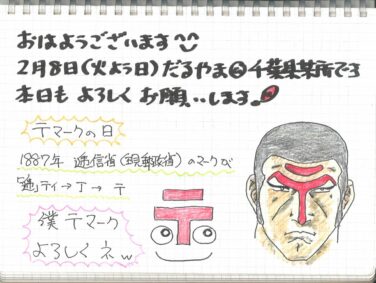 おはようございます
2月8日(火よう日)だるやま@千葉県某所です
本日も よろしくお願いします。
〒マークの日
1887年 逓信省(現郵政省)のマークが
「逓」テイ→T→〒
僕〒マーク
よろしくネw
〒